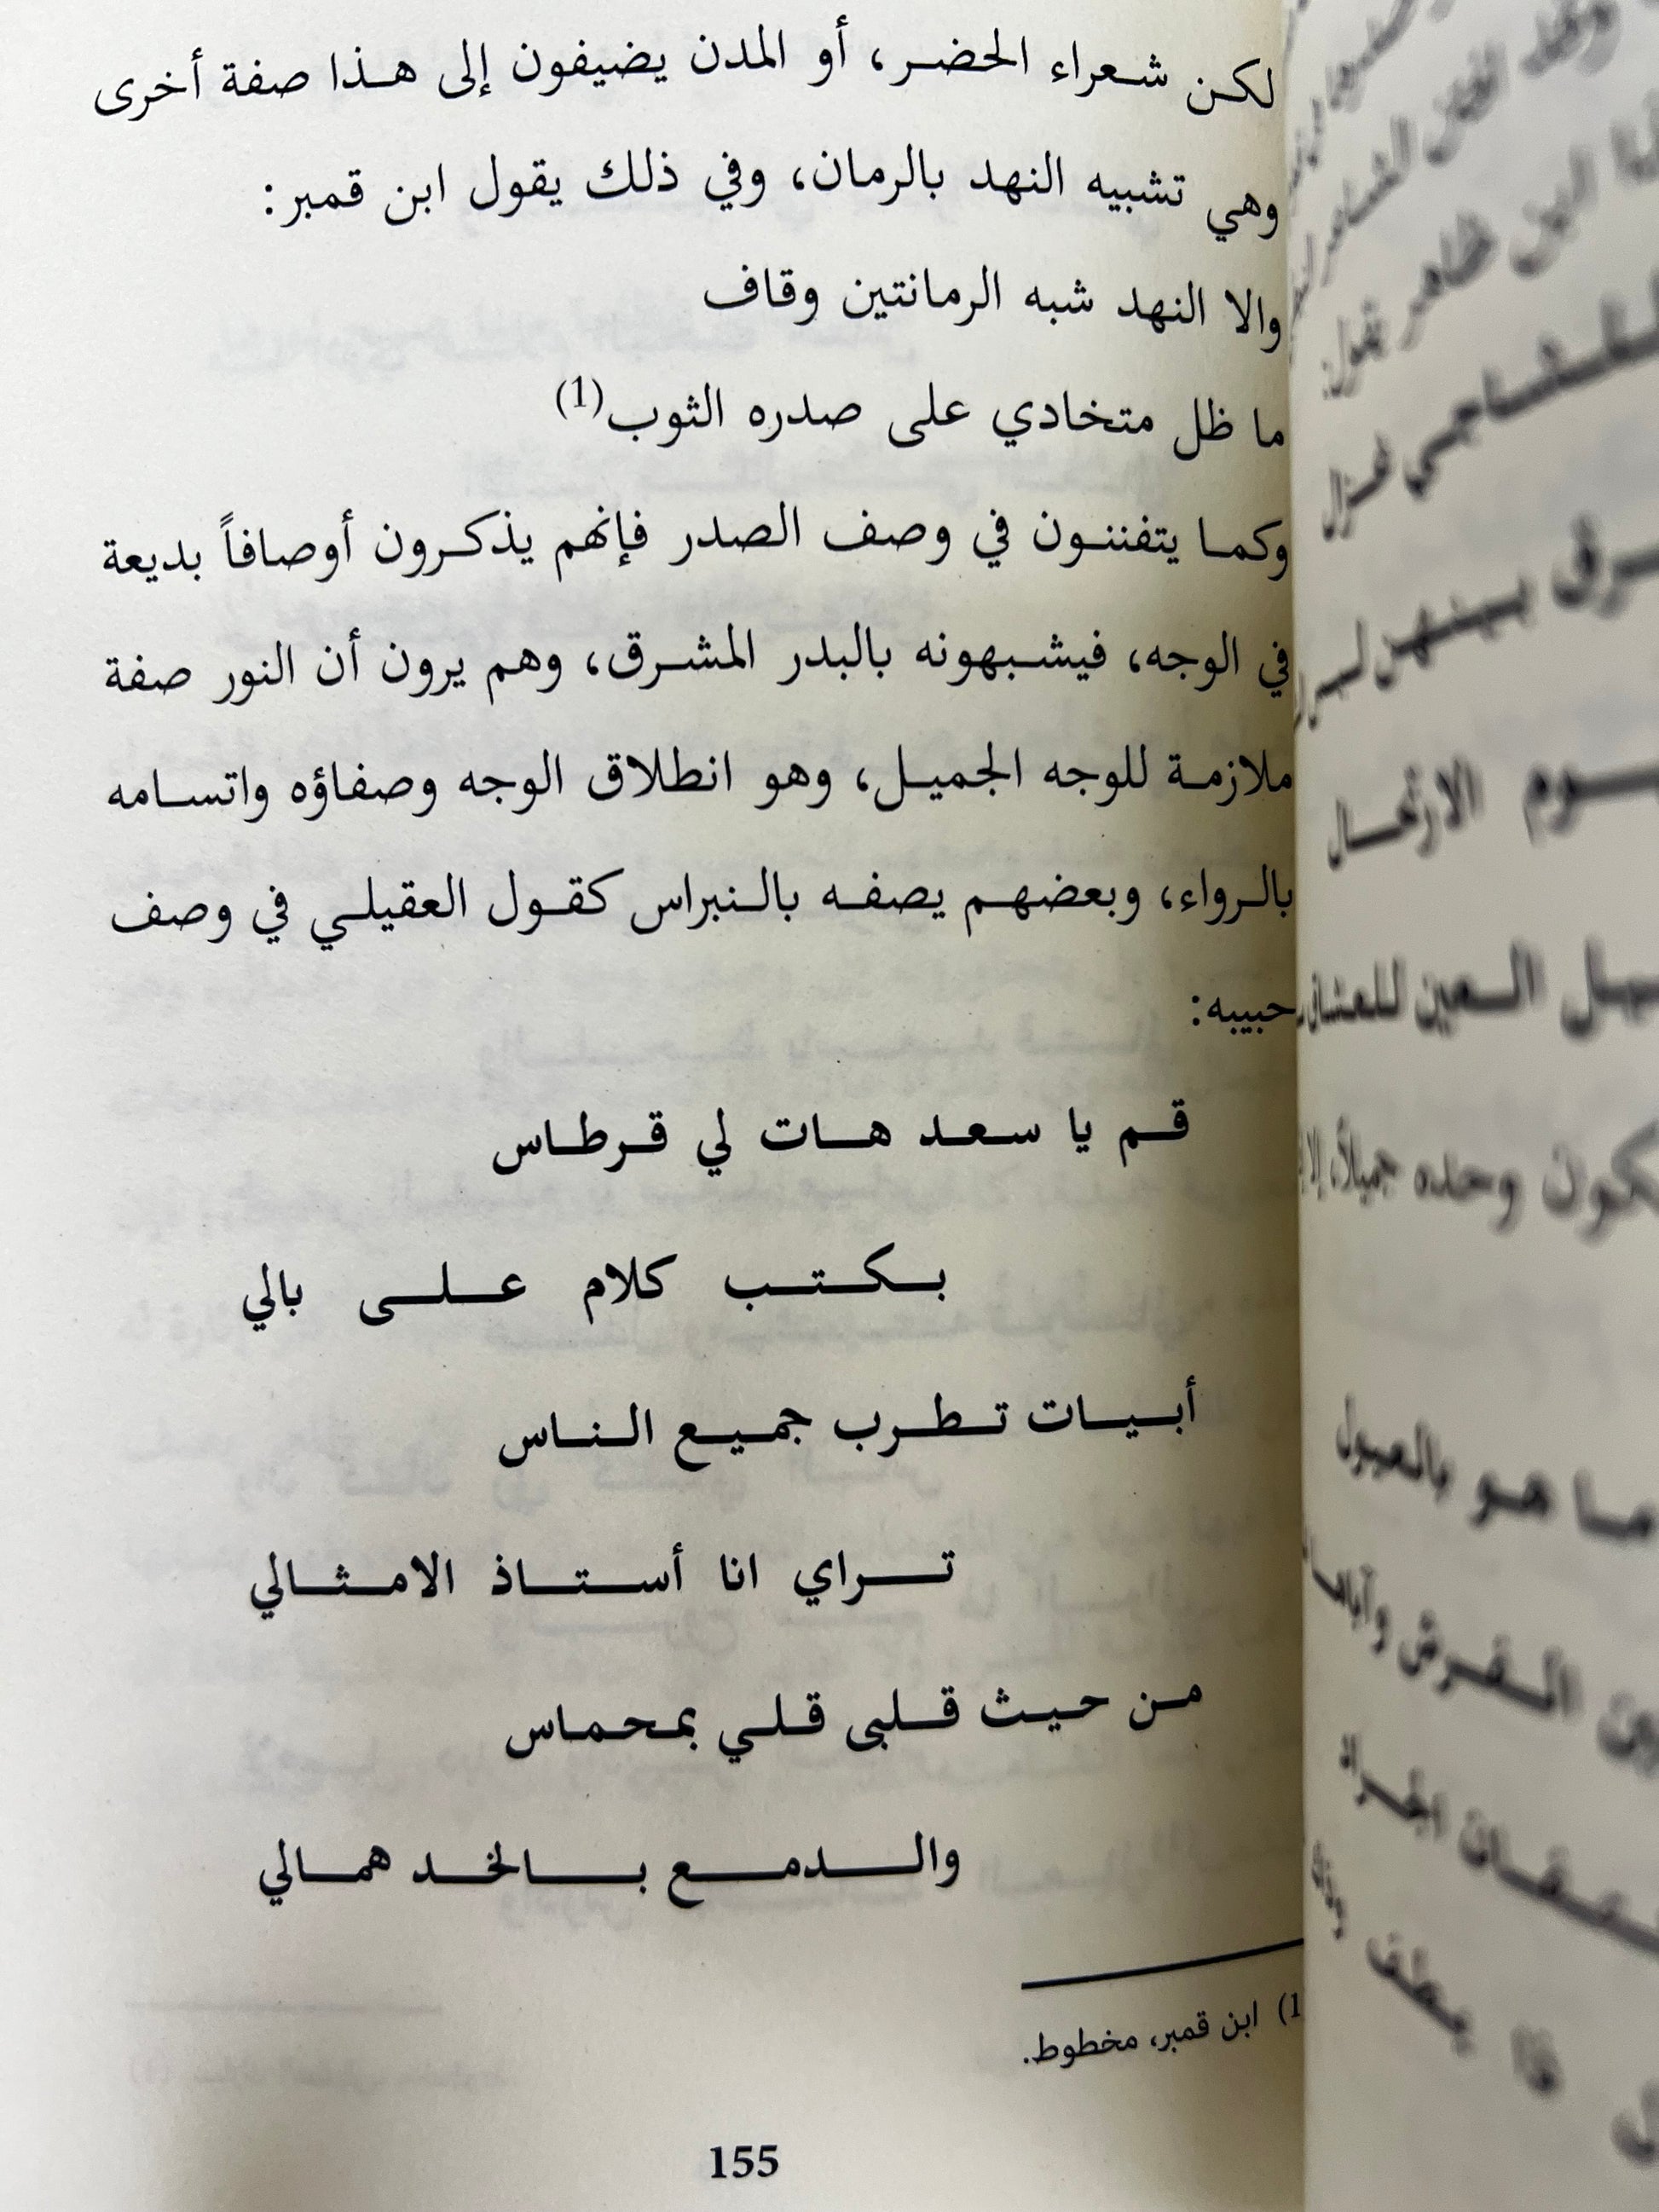 لكن شعراء الحضر، أو المدن يضيفون إلى هذا صفة أخرى
وهي تشبيه النهد بالرمان، وفي ذلك يقول ابن قمبر:
والا النهد شبه الرمانتين وقاف
ما ظل متخادي على صدره الثوب(1)
وكما يتفننون في وصف الصدر فإنهم يذكرون أوصافاً بديعة
في الوجه، فيشبهونه بالبدر المشرق، وهم يرون أن النور صفة
ملازمة للوجه الجميل، وهو انطلاق الوجه وصفاؤه واتسامه
بالرواء، وبعضهم يصفه بالنبراس كقول العقيلي في وصف
حبيبه:
قم يا سعد هات لي قرطاس
بكتب كلام على بالي
أبيات تطرب جميع الناس
تراي انا أستاذ الامثالي
من حيث قلبى قلي بمحماس
والدمع بالخد همالي
1) ابن قمبر، مخطوط.
155
غزال
يقول:
بينهن
وم الارتحال
العين
كون وحده جميلاً،
ما هو